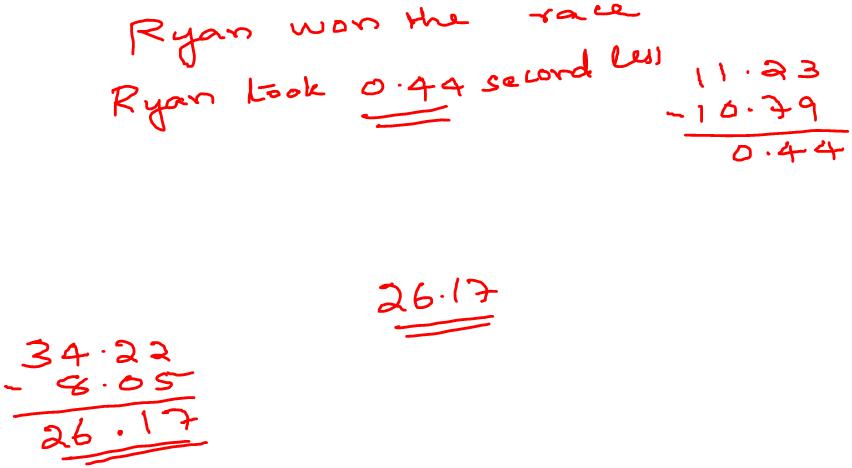 Ryan won the race
Ryan took 0.44 second less
11.23
- 10.79
0.44
26.17
34.22
- 8.05
26.17